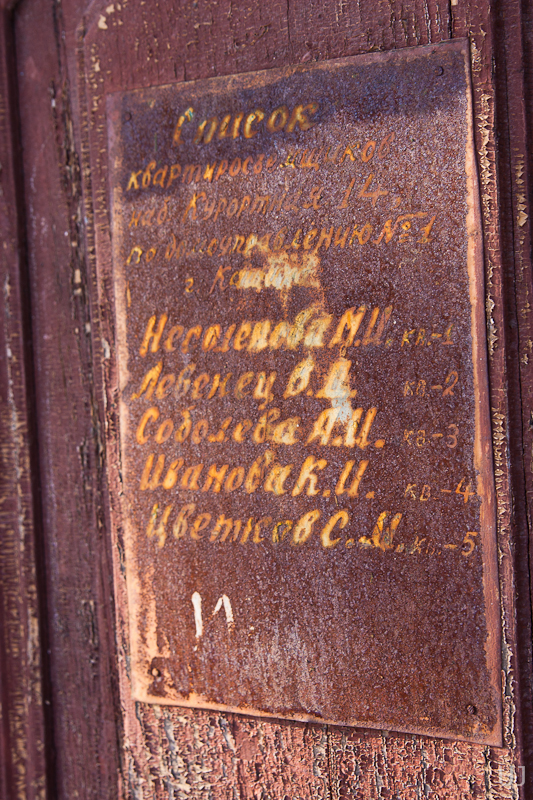 Список
квартиросъемщиков
наб. Курортная 14.
по домоуправлению №1
г.
М.И. кв.-1
Левенец В.Д. кв.-2
Соболева А.И. кв-3
Иванова К.И. кв-4
Цветков С.И. кв.-5
И